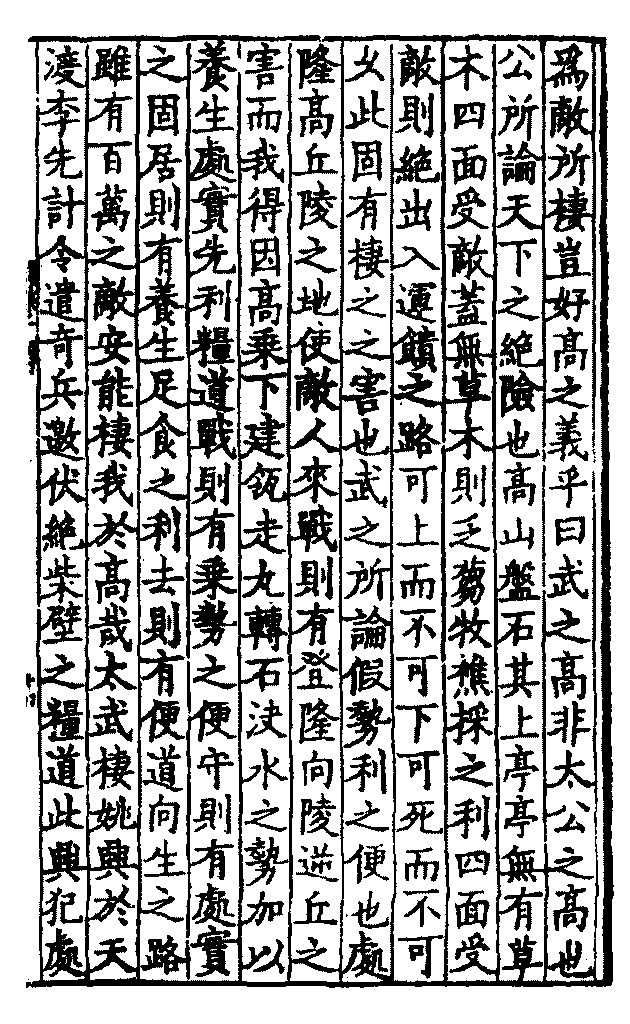 為敵所棲豈好高之義乎曰武之高非太公之高也
公所論天下之絕險也高山盤石其上亭亭無有草
木四面受敵蓋無草木則乏蒭牧樵採之利四面受
敵則絕出入運饋之路可上而不可下可死而不可
久此固有棲之之害也武之所論假勢利之便也處
隆高丘陵之地使敵人來戰則有登隆向陵逆丘之
害而我得因高乗下建瓴走丸轉石決水之勢加以
養生處實先利糧道戰則有乗勢之便守則有處實
之固居則有養生足食之利去則有便道向生之路
雖有百萬之敵安能棲我於高哉太武棲姚興於天
渡李先計令遣奇兵邀伏絕柴壁之糧道此興犯處